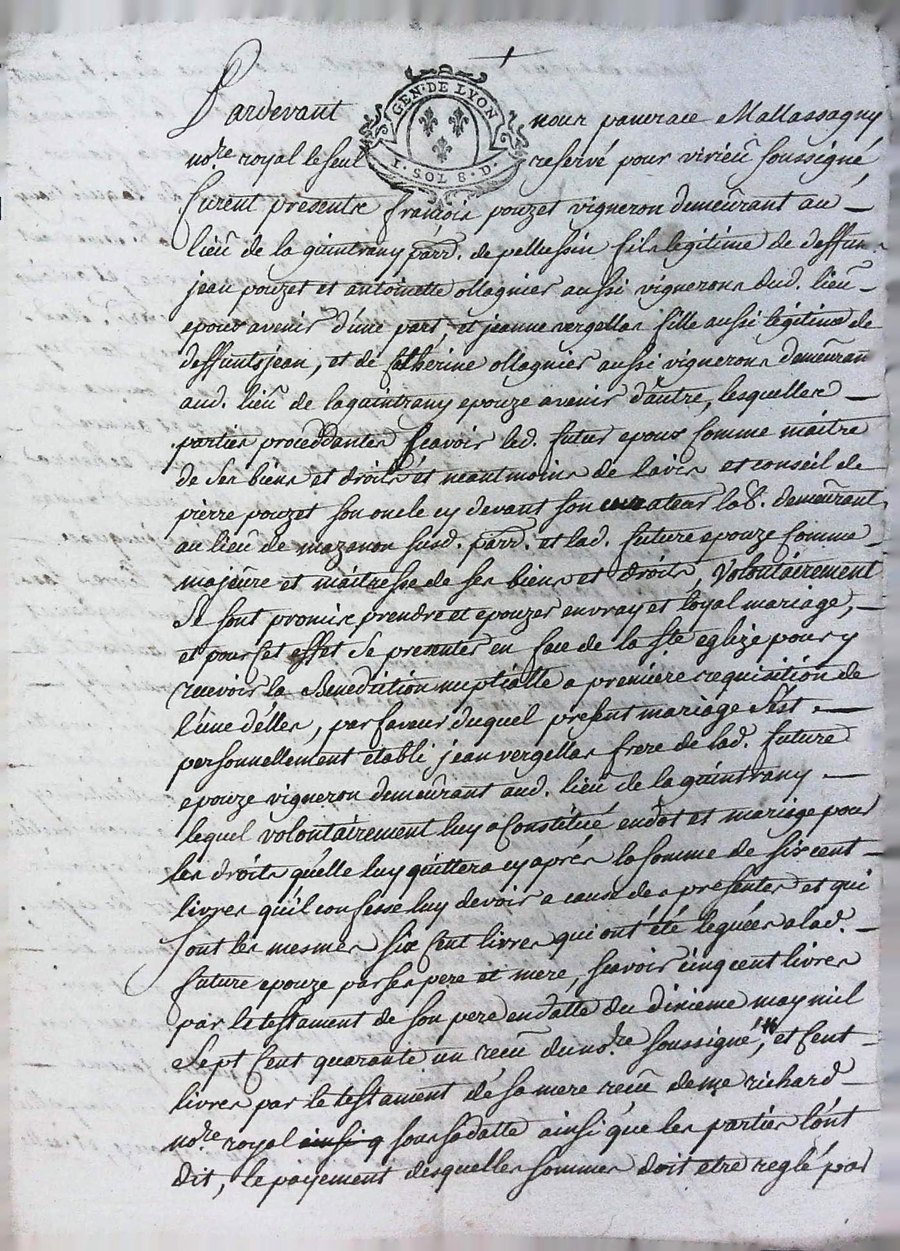 GEN. DE LYON
1. SOL 8. D.
Pardevant nous pancrace Mallassagny
no.re royal le seul reservé pour virieü soussigné,
furent presents françois pouzet vigneron demeürant au
lieü de la guintrany parr. de pellussin fils legitime de deffun
jean pouzet et antoinette ollagnier aussi vignerons dud. lieü
epoux avenir d'une part, et jeanne vergellas fille aussi légitime de
deffunts jean, et de Catherine ollagnier aussi vignerons demeüran
aud. lieü de laguintrany epouze avenir d'autre, lesquelles
parties proceddantes scavoir led. futur epoux comme maitre
de ses biens et droits et neantmoins de l'avis et conseil de
pierre pouzet son oncle cy devant son curateur lab. demeürant
au lieü de mazenon susd. parr. et lad. future epouze comme
majeüre et maitresse de ses biens et droits, volontairement
Se sont promis prendre et epouzer en vray et loyal mariage,
et pour cet effet Se presenter en face de la s.te eglize pour y
recevoir la Benediction nuptialle a premiere requisition de
l'une d'elles, par faveur duquel present mariage s'est
personnellement établi jean vergellas frere de lad. future
epouze vigneron demeürant aud. lieü de la guintrany
lequel volontairement luy a Constitué en dot et mariage pour
les droits qu'elle luy quittera cy aprés la somme de six cent
livres qu'il confesse luy devoir a cause des presentes et qui
sont les mesmes six cent livres qui ont été leguées a lad.
future epouze par ses pere et mere, scavoir cinq cent livres
par le testament de son pere en datte du dixieme may mil
Sept Cent quarante un recü du no.re soussigné, et Cent
livres par le testament de sa mere recü de me richard
no.re royal ainsi q sous sa datte ainsi que les parties l'ont
dit, le payement desquelles sommes doit etre reglé par